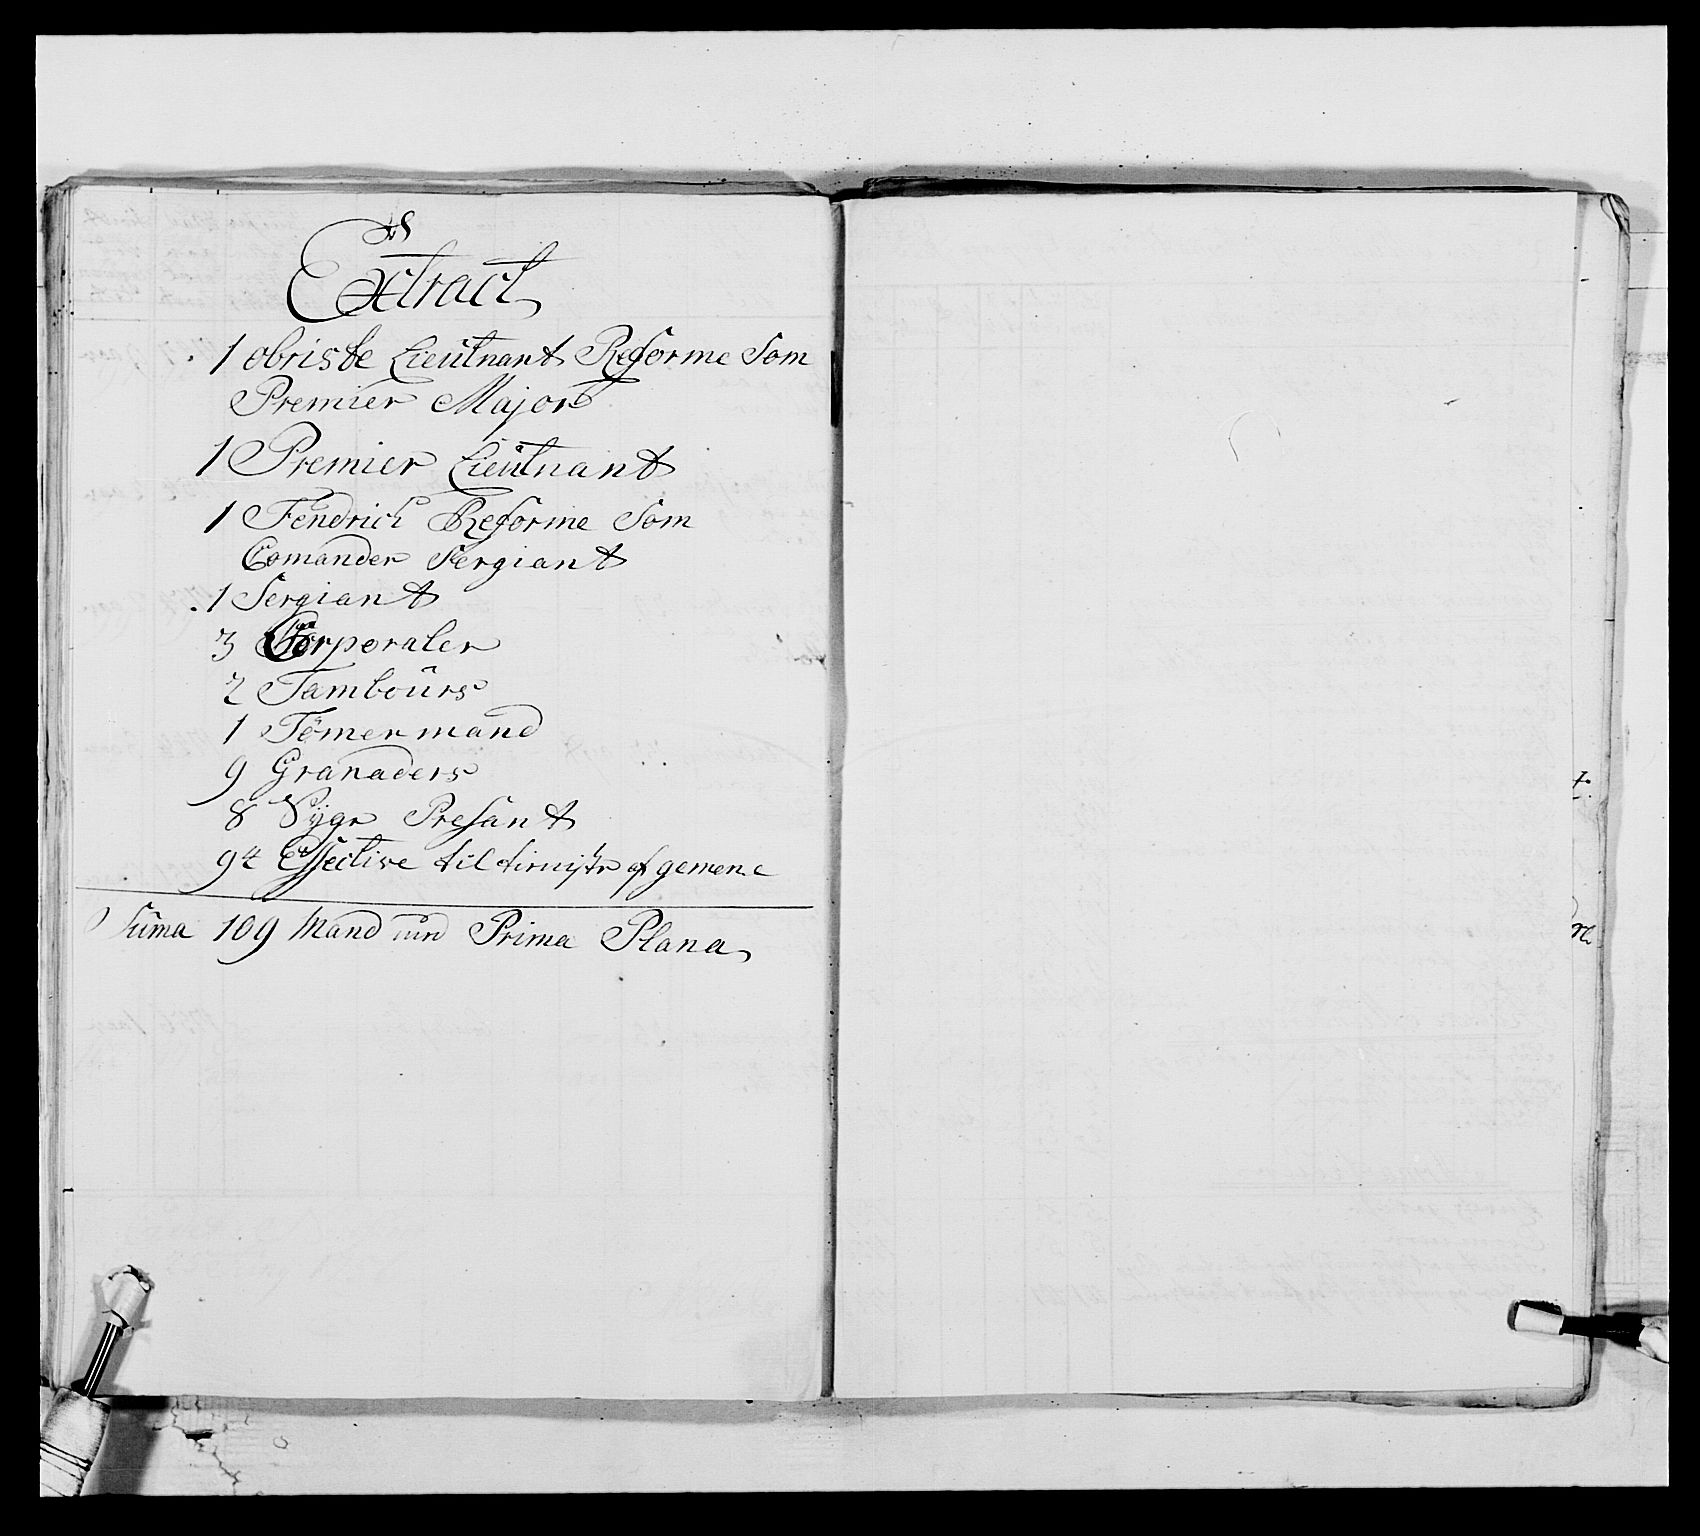 Extract
1 obriste Lieutnant Reforme Som
Premier Major
1 Premier Lieutnant
1 Fendrich Reforme Som
Comander Sergiant
1 Sergiant
3 Corporaler
2 Tambours
1 Tömermand
9 Granaders
8 Sÿge Presant
94 Effective til af gemene
Suma 109 Mand Prima Plana